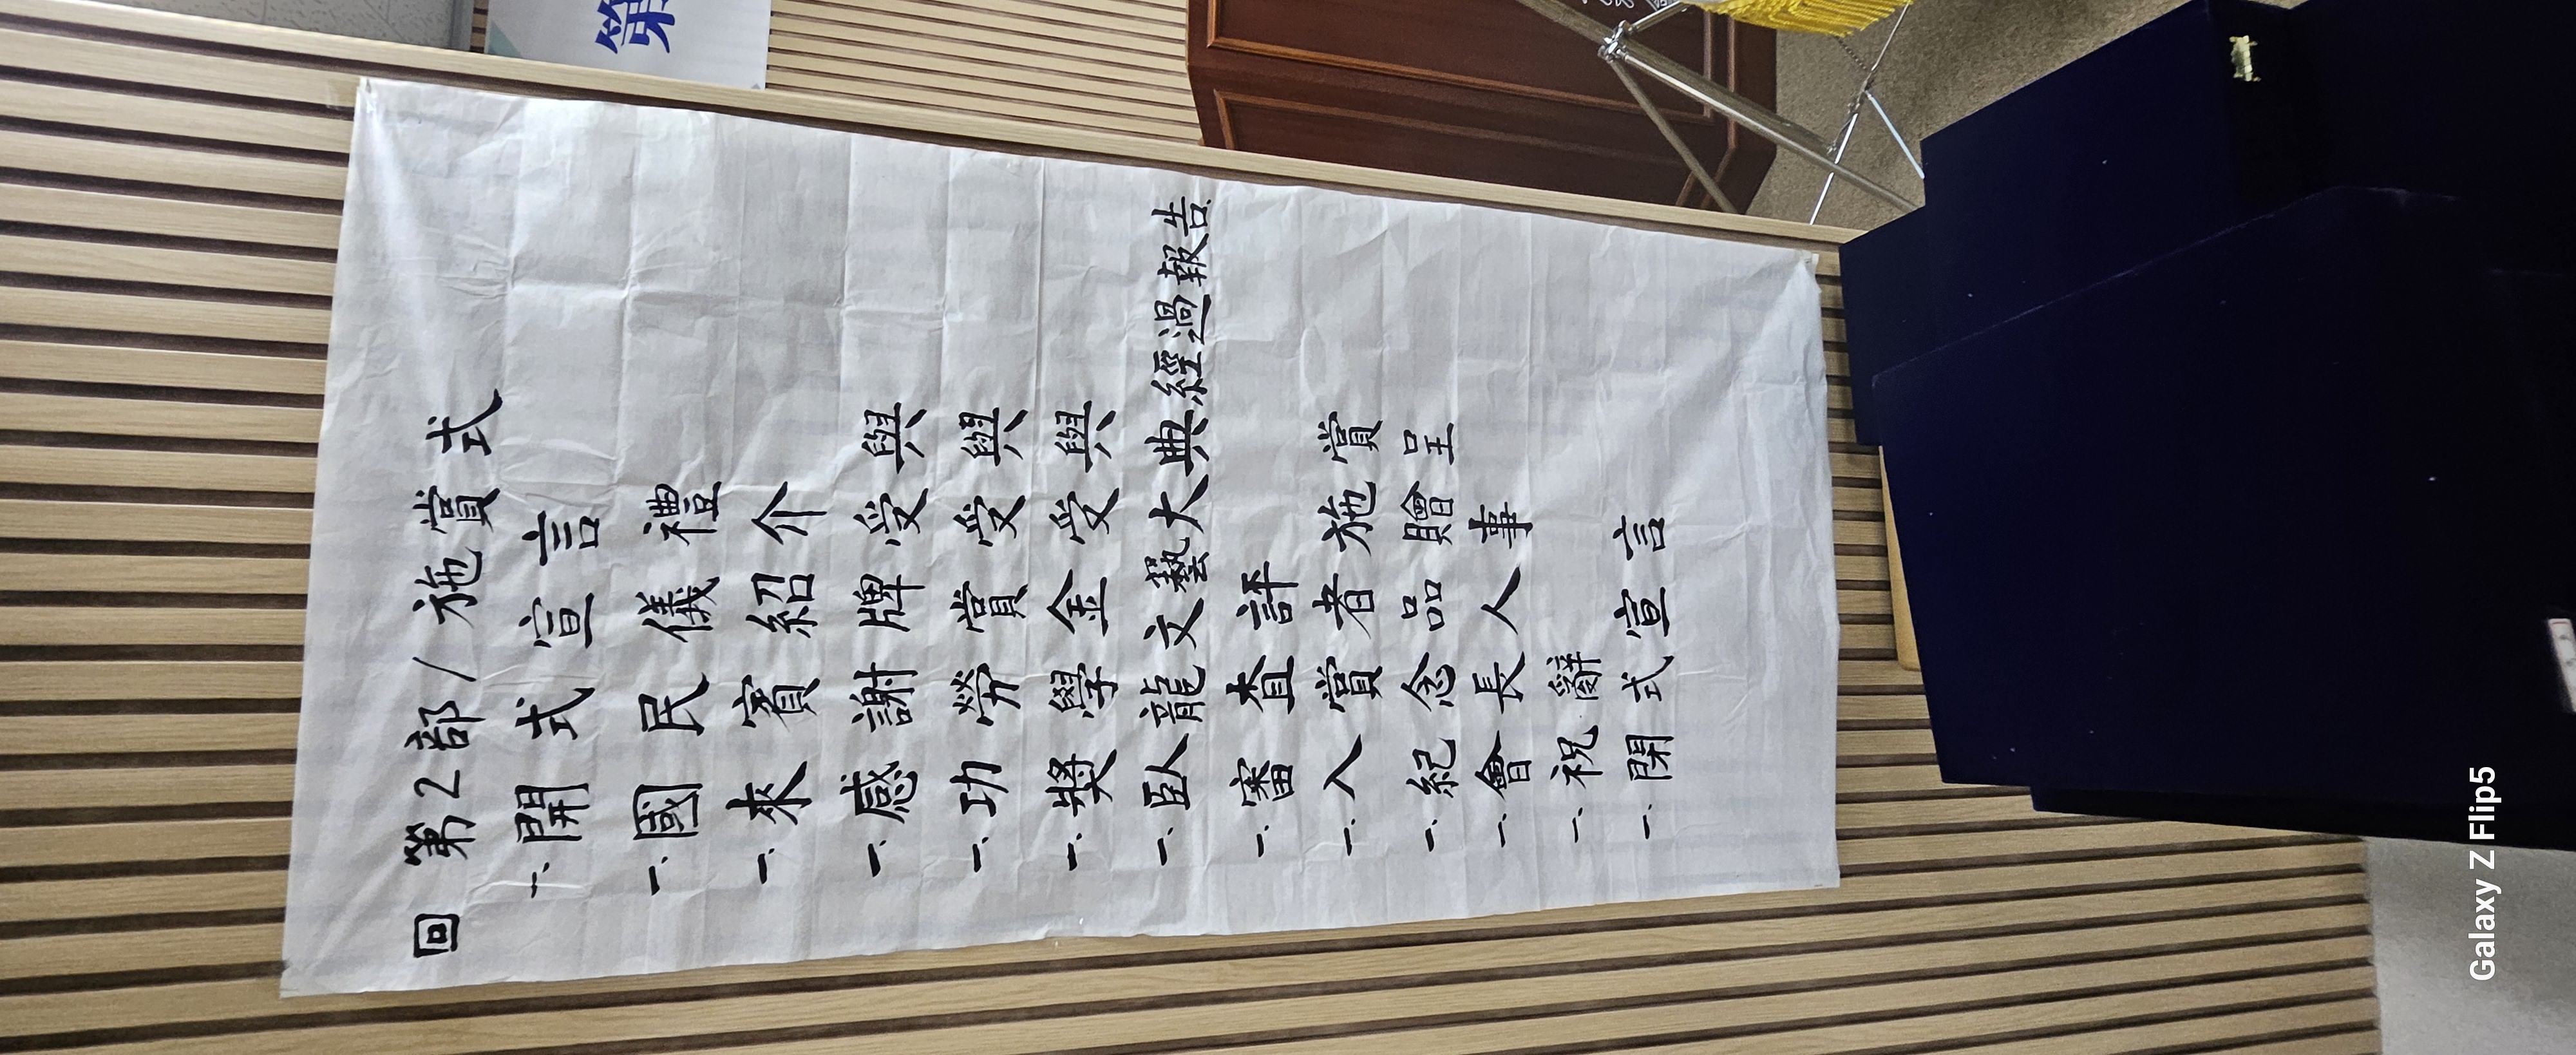 回 第2部/施賞式
一、開式宣言
一、國民儀禮
一、來賓紹介
一、感謝牌受與
一、功勞賞受與
一、奬學金受與
一、臥龍文藝大典經過報告
一、審査評
一、入賞者施賞
一、紀念品贈呈
一、會長人事
一、祝辭
一、閉式宣言
第
Galaxy Z Flip5